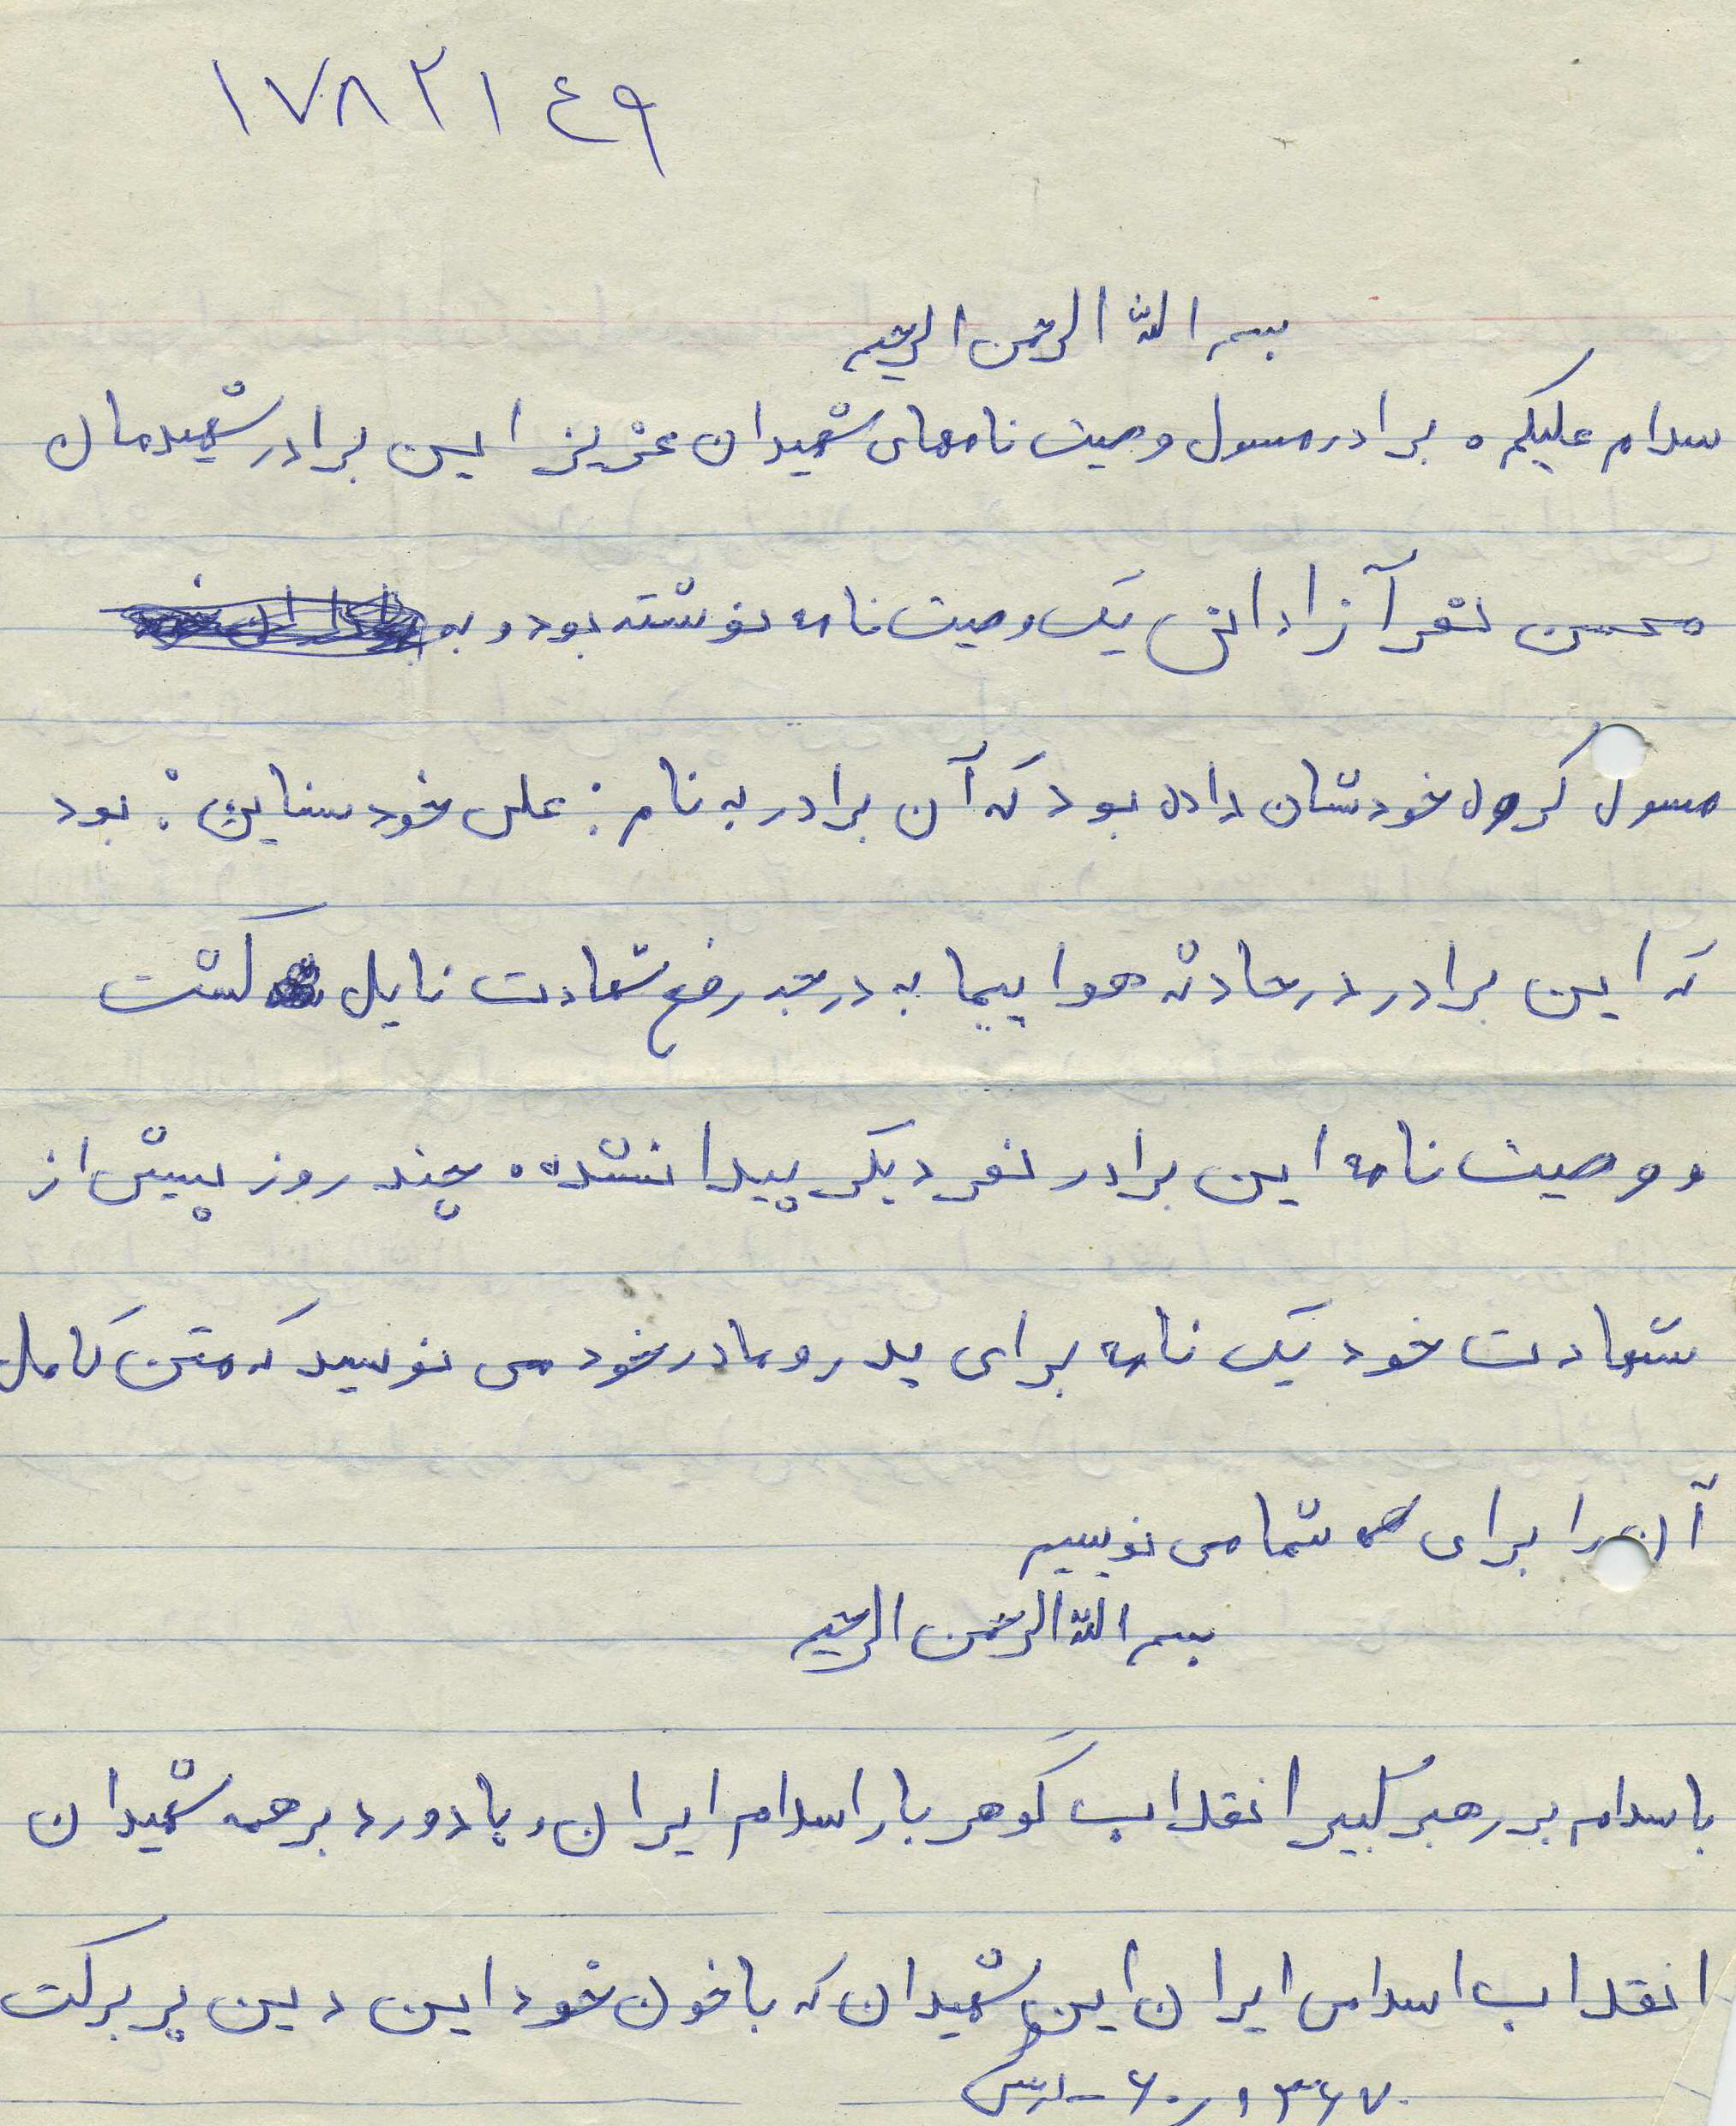 ۱۷۸۲۱٤۹
بسم الله الرحمن الرحیم
سلام علیکم . برادر مسول وصیت نامهای شهیدان عزیز این برادر شهیدمان
محسن نفر آزادانی یک وصیت نامه نوشته بود و به
مسول گروه خودشان داده بود که آن برادر به نام : علی خود سنایئ : بود
که این برادر در حادثه هواپیما به درجه رفع شهادت نایل گشت
و وصیت نامه این برادر نفر دیگر پیدا نشده . چند روز پیش از
شهادت خود یک نامه برای پدر و مادر خود می نویسد که متن کامل
آن را برای شما می نویسیم
بسم الله الرحمن الرحیم
با سلام بر رهبر کبیر انقلاب گوهر بار اسلام ایران و با دورد بر همه شهیدان
انقلاب اسلامی ایران این شهیدان که با خون خود این دین پر برکت